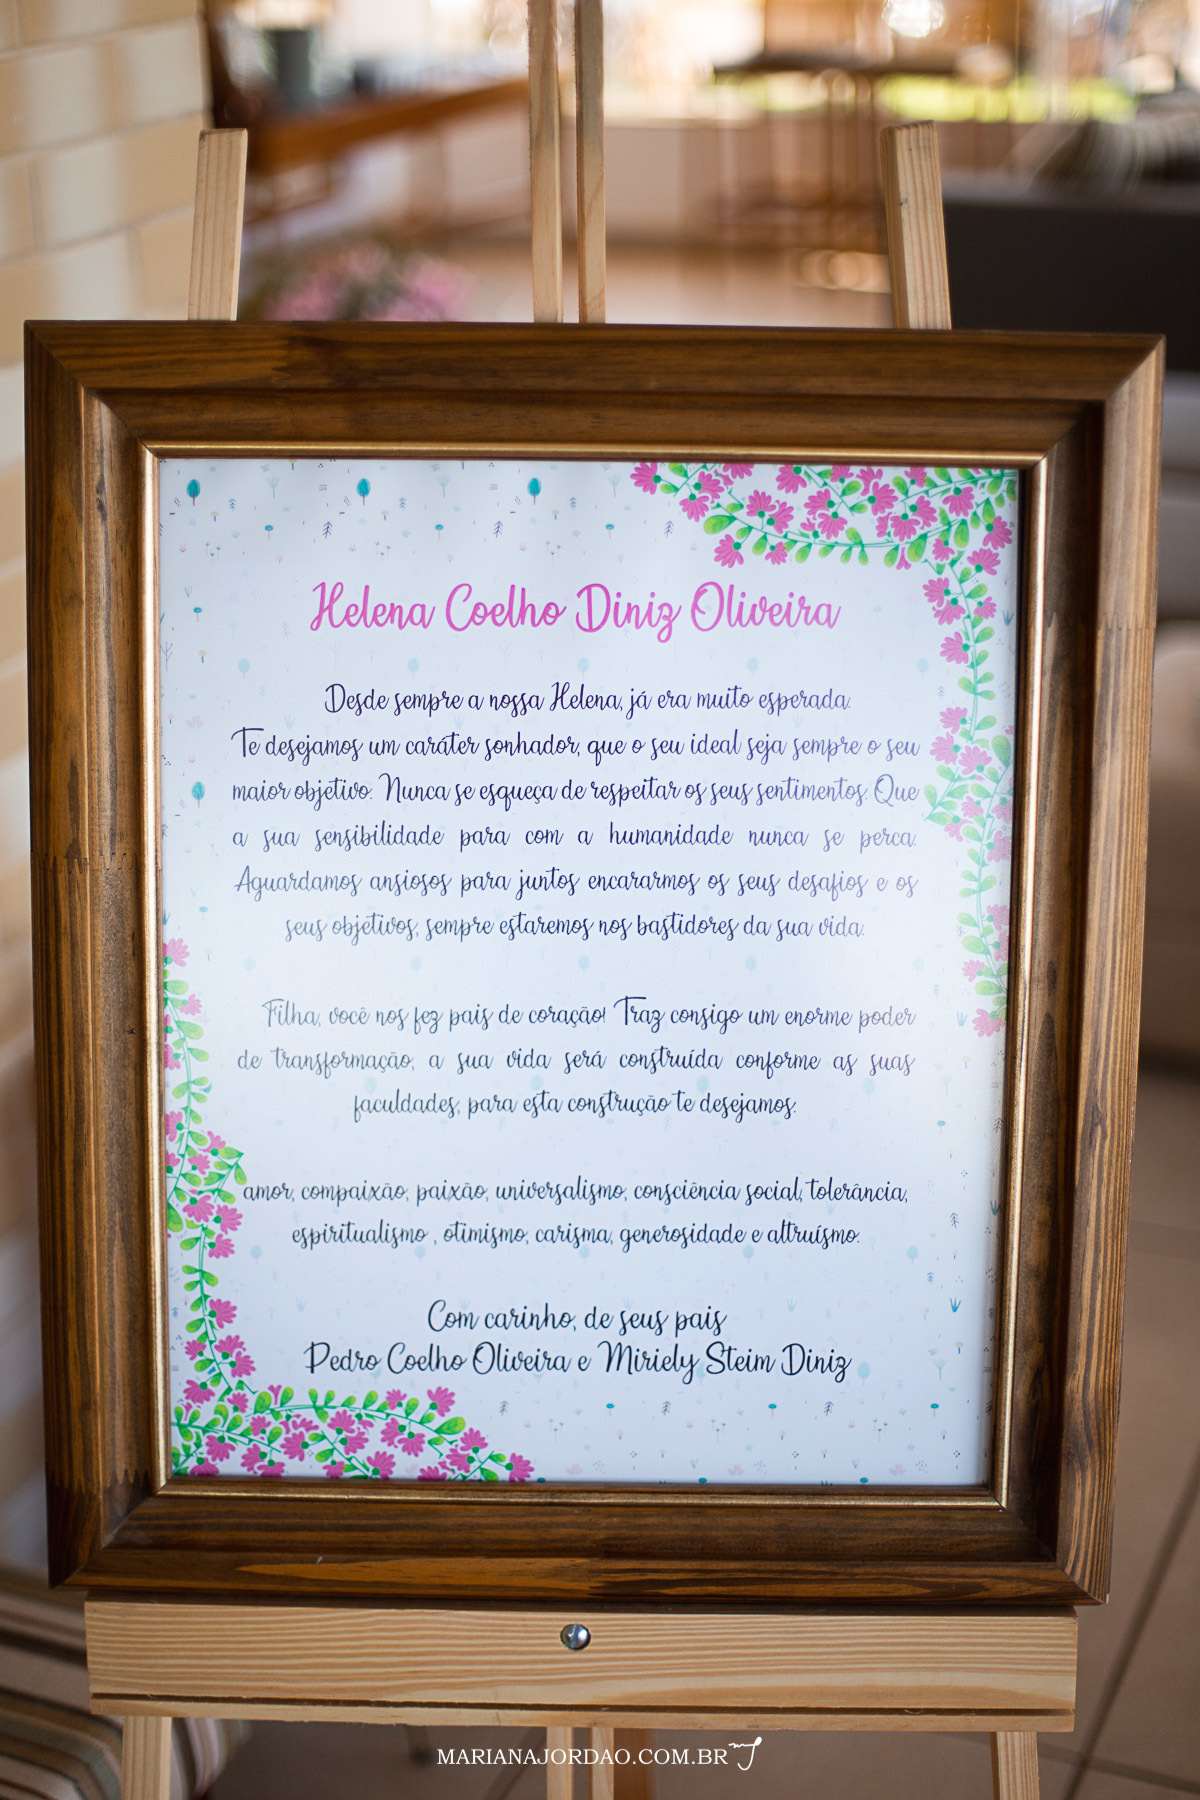 Helena Coelho Diniz Oliveira
Desde sempre a nossa Helena, já era muito esperada.
Te desejamos um caráter sonhador, que o seu ideal seja sempre o seu
maior objetivo. Nunca se esqueça de respeitar os seus sentimentos. Que
a sua sensibilidade para com a humanidade nunca se perca.
Aguardamos ansiosos para juntos encararmos os seus desafios e os
seus objetivos, sempre estaremos nos bastidores da sua vida.
Filha, você nos fez pais de coração! Traz consigo um enorme poder
de transformação, a sua vida será construída conforme as suas
faculdades, para esta construção te desejamos:
amor, compaixão, paixão, universalismo, consciência social, tolerância,
espiritualismo , otimismo, carisma, generosidade e altruísmo.
Com carinho, de seus pais
Pedro Coelho Oliveira e Miriely Steim Diniz
MARIANAJORDAO.COM.BR